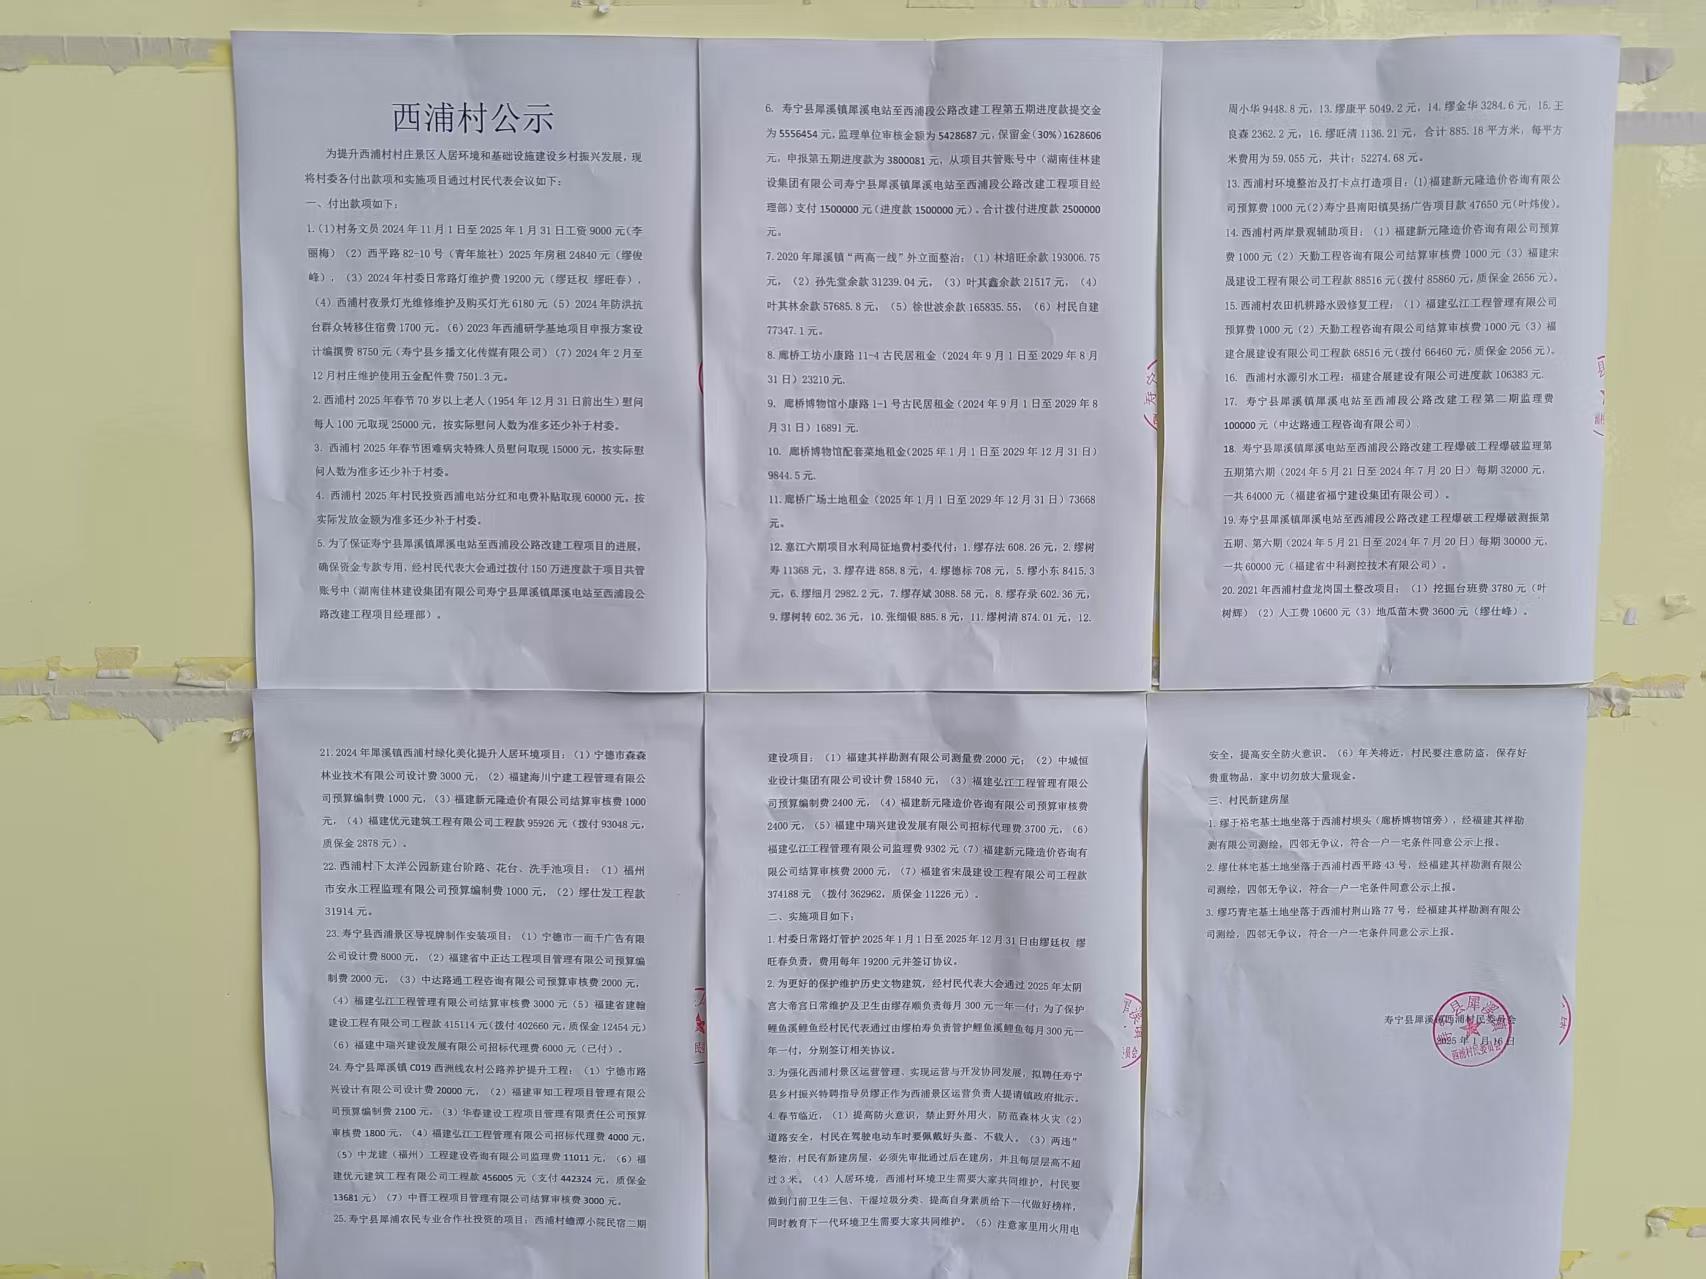 西浦村公示
为提升西浦村村庄景区人居环境和基础设施建设乡村振兴发展，现
将村委各付出款项和实施项目通过村民代表会议如下：
一、付出款项如下：
1.（1）村务文员2024年11月1日至2025年1月31日工资9000元（李
丽梅）（2）西平路82-10号（青年旅社）2025年房租24840元（缪俊
峰），（3）2024年村委日常路灯维护费19200元（缪廷权 缪旺春），
（4）西浦村夜景灯光维修维护及购买灯光6180元（5）2024年防洪抗
台群众转移住宿费1700元。（6）2023年西浦研学基地项目申报方案设
计编撰费8750元（寿宁县乡播文化传媒有限公司）（7）2024年2月至
12月村庄维护使用五金配件费7501.3元。
2.西浦村2025年春节70岁以上老人（1954年12月31日前出生）慰问
每人100元取现25000元，按实际慰问人数为准多还少补于村委。
3. 西浦村2025年春节困难病灾特殊人员慰问取现15000元，按实际慰
问人数为准多还少补于村委。
4. 西浦村2025年村民投资西浦电站分红和电费补贴取现60000元，按
实际发放金额为准多还少补于村委。
5.为了保证寿宁县犀溪镇犀溪电站至西浦段公路改建工程项目的进展，
确保资金专款专用，经村民代表大会通过拨付150万进度款于项目共管
账号中（湖南佳林建设集团有限公司寿宁县犀溪镇犀溪电站至西浦段公
路改建工程项目经理部）。
6. 寿宁县犀溪镇犀溪电站至西浦段公路改建工程第五期进度款提交金
为5556454元，监理单位审核金额为5428687元，保留金（30%）1628606
元，申报第五期进度款为3800081元，从项目共管账号中（湖南佳林建
设集团有限公司寿宁县犀溪镇犀溪电站至西浦段公路改建工程项目经
理部）支付1500000元（进度款1500000元）。合计拨付进度款2500000
元。
7.2020年犀溪镇“两高一线”外立面整治：（1）林培旺余款193006.75
元，（2）孙先堂余款31239.04元，（3）叶其鑫余款21517元，（4）
叶其林余款57685.8元，（5）徐世波余款165835.55，（6）村民自建
77347.1元。
8.廊桥工坊小康路11-4古民居租金（2024年9月1日至2029年8月
31日）23210元.
9. 廊桥博物馆小康路1-1号古民居租金（2024年9月1日至2029年8
月31日）16891元.
10. 廊桥博物馆配套菜地租金（2025年1月1日至2029年12月31日）
9844.5元.
11.廊桥广场土地租金（2025年1月1日至2029年12月31日）73668
元。
12.塞江六期项目水利局征地费村委代付：1.缪存法608.26元，2.缪树
寿11368元，3.缪存进858.8元，4.缪德标708元，5.缪小东8415.3
元，6.缪细月2982.2元，7.缪存斌3088.58元，8.缪存录602.36元，
9.缪树转602.36元，10.张细银885.8元，11.缪树清874.01元，12.
周小华9448.8元，13.缪康平5049.2元，14.缪金华3284.6元，15.王
良森2362.2元，16.缪旺清1136.21元，合计885.18平方米，每平方
米费用为59.055元，共计：52274.68元。
13.西浦村环境整治及打卡点打造项目：（1）福建新元隆造价咨询有限公
司预算费1000元（2）寿宁县南阳镇昊扬广告项目款47650元（叶炜俊）。
14.西浦村两岸景观辅助项目：（1）福建新元隆造价咨询有限公司预算
费1000元（2）天勤工程咨询有限公司结算审核费1000元（3）福建宋
晟建设工程有限公司工程款88516元（拨付85860元，质保金2656元）。
15.西浦村农田机耕路水毁修复工程：（1）福建弘江工程管理有限公司
预算费1000元（2）天勤工程咨询有限公司结算审核费1000元（3）福
建合展建设有限公司工程款68516元（拨付66460元，质保金2056元）。
16. 西浦村水源引水工程：福建合展建设有限公司进度款106383元.
17. 寿宁县犀溪镇犀溪电站至西浦段公路改建工程第二期监理费
100000元（中达路通工程咨询有限公司）.
18. 寿宁县犀溪镇犀溪电站至西浦段公路改建工程爆破工程爆破监理第
五期第六期（2024年5月21日至2024年7月20日）每期32000元，
一共64000元（福建省福宁建设集团有限公司）。
19.寿宁县犀溪镇犀溪电站至西浦段公路改建工程爆破工程爆破测振第
五期、第六期（2024年5月21日至2024年7月20日）每期30000元，
一共60000元（福建省中科测控技术有限公司）。
20.2021年西浦村盘龙岗国土整改项目：（1）挖掘台班费3780元（叶
树辉）（2）人工费10600元（3）地瓜苗木费3600元（缪仕峰）。
21.2024年犀溪镇西浦村绿化美化提升人居环境项目：（1）宁德市森森
林业技术有限公司设计费3000元，（2）福建海川宁建工程管理有限公
司预算编制费1000元，（3）福建新元隆造价有限公司结算审核费1000
元，（4）福建优元建筑工程有限公司工程款95926元（拨付93048元，
质保金2878元）。
22.西浦村下太洋公园新建台阶路、花台、洗手池项目：（1）福州
市安永工程监理有限公司预算编制费1000元，（2）缪仕发工程款
31914元。
23.寿宁县西浦景区导视牌制作安装项目：（1）宁德市一而千广告有限
公司设计费8000元，（2）福建省中正达工程项目管理有限公司预算编
制费2000元，（3）中达路通工程咨询有限公司预算审核费2000元，
（4）福建弘江工程管理有限公司结算审核费3000元（5）福建省建翰
建设工程有限公司工程款415114元（拨付402660元，质保金12454元）
（6）福建中瑞兴建设发展有限公司招标代理费6000元（已付）.
24.寿宁县犀溪镇C019西洲线农村公路养护提升工程：（1）宁德市路
兴设计有限公司设计费20000元，（2）福建审知工程项目管理有限公
司预算编制费2100元，（3）华春建设工程项目管理有限责任公司预算
审核费1800元，（4）福建弘江工程管理有限公司招标代理费4000元，
（5）中龙建（福州）工程建设咨询有限公司监理费11011元，（6）福
建优元建筑工程有限公司工程款456005元（支付442324元，质保金
13681元）（7）中晋工程项目管理有限公司结算审核费3000元。
25.寿宁县犀浦农民专业合作社投资的项目：西浦村蟾潭小院民宿二期
建设项目：（1）福建其祥勘测有限公司测量费2000元；（2）中城恒
业设计集团有限公司设计费15840元，（3）福建弘江工程管理有限公
司预算编制费2400元，（4）福建新元隆造价咨询有限公司预算审核费
2400元，（5）福建中瑞兴建设发展有限公司招标代理费3700元，（6）
福建弘江工程管理有限公司监理费9302元（7）福建新元隆造价咨询有
限公司结算审核费2000元，（7）福建省宋晟建设工程有限公司工程款
374188元 （拨付362962，质保金11226元）.
二、实施项目如下：
1.村委日常路灯管护2025年1月1日至2025年12月31日由缪廷权 缪
旺春负责，费用每年19200元并签订协议。
2.为更好的保护维护历史文物建筑，经村民代表大会通过2025年太阴
宫大帝宫日常维护及卫生由缪存顺负责每月300元一年一付；为了保护
鲤鱼溪鲤鱼经村民代表通过由缪柏寿负责管护鲤鱼溪鲤鱼每月300元一
年一付，分别签订相关协议。
3.为强化西浦村景区运营管理、实现运营与开发协同发展，拟聘任寿宁
县乡村振兴特聘指导员缪正作为西浦景区运营负责人提请镇政府批示。
4.春节临近，（1）提高防火意识，禁止野外用火，防范森林火灾（2）
道路安全，村民在驾驶电动车时要佩戴好头盔、不载人。（3）两违”
整治，村民有新建房屋，必须先审批通过后在建房，并且每层层高不超
过3米。（4）人居环境，西浦村环境卫生需要大家共同维护，村民要
做到门前卫生三包、干湿垃圾分类、提高自身素质给下一代做好榜样，
同时教育下一代环境卫生需要大家共同维护。（5）注意家里用火用电
安全，提高安全防火意识。（6）年关将近，村民要注意防盗，保存好
贵重物品，家中切勿放大量现金。
三、村民新建房屋
1.缪于裕宅基土地坐落于西浦村坝头（廊桥博物馆旁），经福建其祥勘
测有限公司测绘，四邻无争议，符合一户一宅条件同意公示上报。
2.缪仕林宅基土地坐落于西浦村西平路43号，经福建其祥勘测有限公
司测绘，四邻无争议，符合一户一宅条件同意公示上报。
3.缪巧青宅基土地坐落于西浦村荆山路77号，经福建其祥勘测有限公
司测绘，四邻无争议，符合一户一宅条件同意公示上报。
寿宁县犀溪镇西浦村民委员会
2025年1月16日